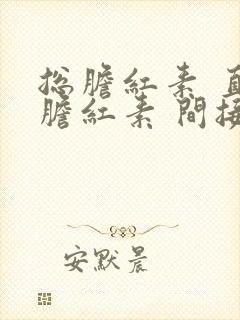 總膽紅素
膽紅素 間接
安默晨